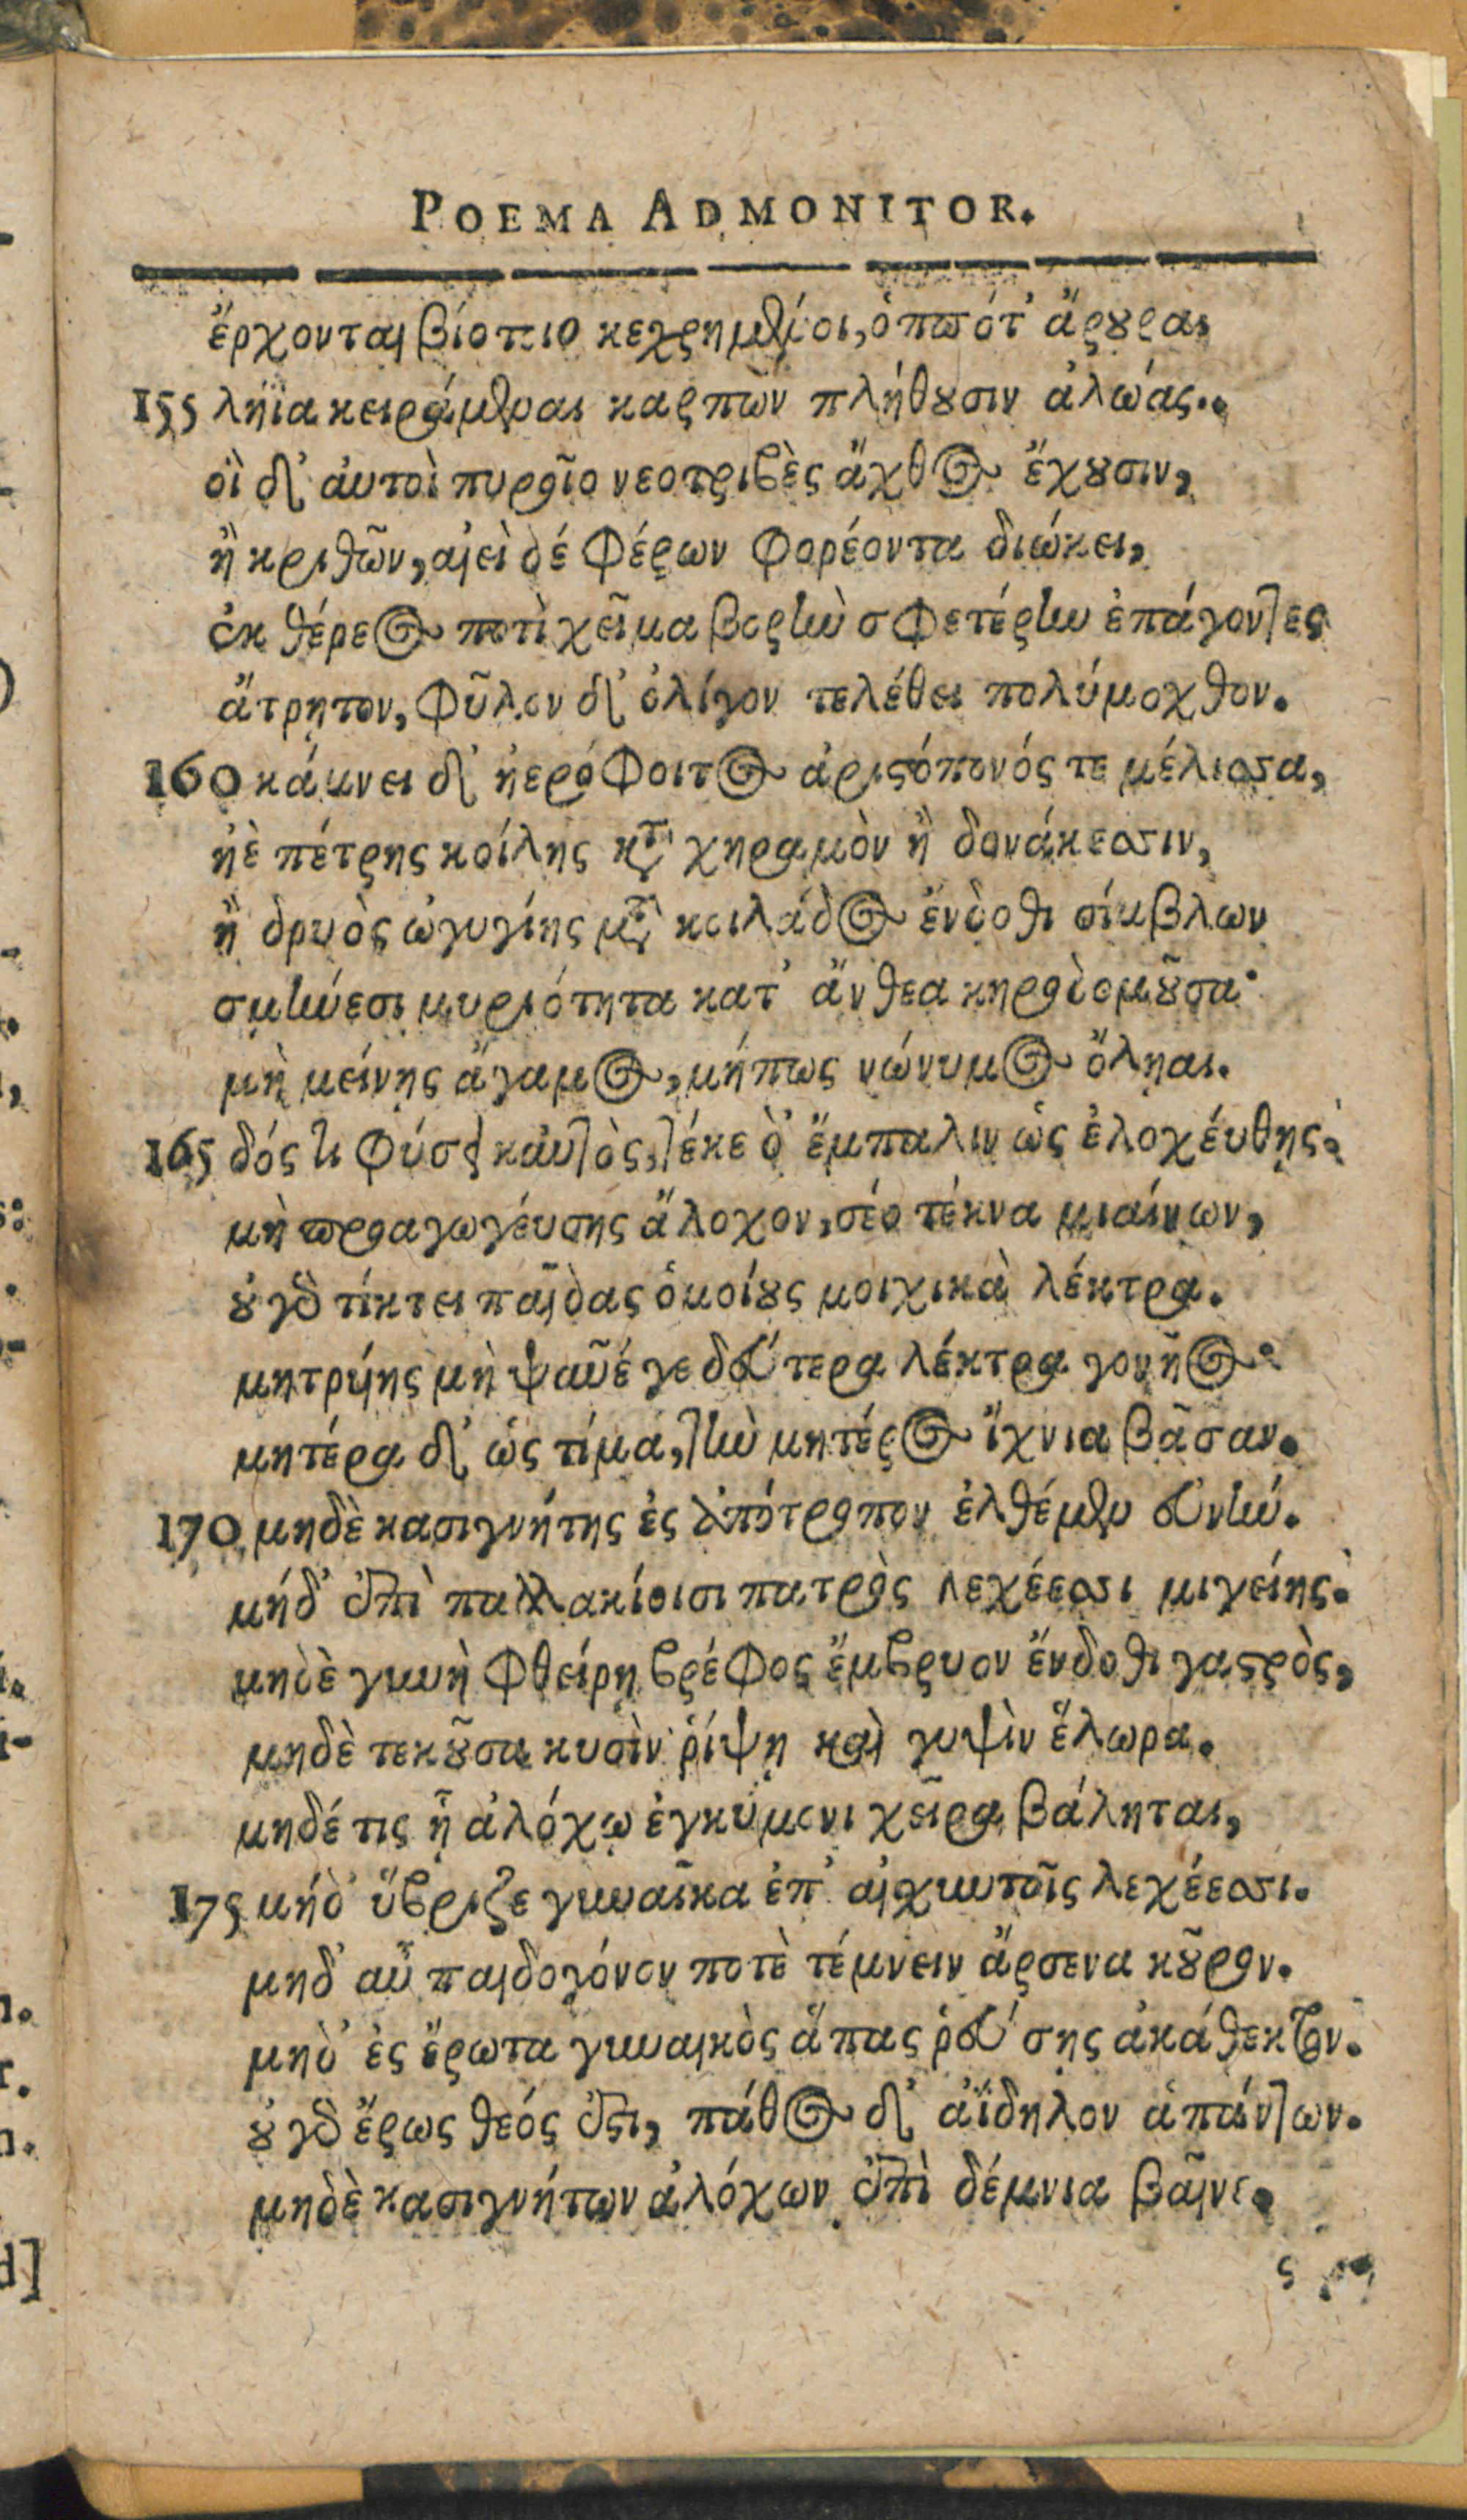 POEMA ADMONITOR.
ἔρχονται βίοτοιο κεχρημένοι, ὁππότ' ἄρουραι
155 λήϊα κειράμεναι καρπῶν πλήθουσιν ἀλωάς..
οἱ δ' αὐτοὶ πυροῖο νεοτριβὲς ἄχθος ἔχουσιν,
ἢ κριθῶν, αἰεὶ δέ φέρων φορέοντα διώκει,
ἐκ θέρεος ποτὶ χεῖμα βορὴν σφετέρην ἐπάγοντες
ἄτρητον, φῦλον δ' ὀλίγον τελέθει πολύμοχθον.
160 κάμνει δ' ἠερόφοιτος ἀριστόπονός τε μέλισσα,
ἠὲ πέτρης κοίλης κατὰ χηραμὸν ἢ δονάκεσσιν,
ἢ δρυὸς ὠγυγίης κατὰ κοιλάδος ἔνδοθι σίμβλων
σμήνεσι μυριότητα κατ' ἄνθεα κηροδομοῦσα·
μὴ μείνης ἄγαμος, μήπως νώνυμος ὄληαι.
165 δός τι φύσει καὐτὸς, τέκε δ' ἔμπαλιν ὡς ἐλοχέυθης·
μὴ προαγωγέυσης ἄλοχον, σέο τέκνα μιαίνων,
οὐ γὰρ τίκτει παῖδας ὁμοίους μοιχικὰ λέκτρα.
μητρυῆς μὴ ψαῦέ γε δεύτερα λέκτρα γονῆος·
μητέρα δ' ὡς τίμα, τὴν μητέρος ἴχνια βᾶσαν.
170 μηδὲ κασιγνήτης ἐς ἀπότροπον ἐλθέμεν εὐνήν.
μήδ' ἐπὶ παλλακίσισι πατρὸς λεχέεσσι μιγείης·
μηδὲ γυνὴ φθείρη βρέφος ἔμβρυον ἔνδοθι γαστρὸς,
μηδὲ τεκοῦσα κυσὶν ῥίψη καὶ γυψὶν ἕλωρα.
μηδέ τις ᾗ ἀλόχῳ ἐγκύμονι χεῖρα βάληται,
175 μήδ' ὕβριζε γυναῖκα ἐπ' αἰσχυντοῖς λεχέεσσι.
μηδ' αὖ παιδογόνον ποτὲ τέμνειν ἄρσενα κοῦρον.
μηδ' ἐς ἔρωτα γυναικὸς ἅπας ῥεύσης ἀκάθεκτον.
οὐ γὰρ ἔρως θεός ἐστι, πάθος δ' ἀΐδηλον ἁπάντων.
μηδὲ κασιγνήτων ἀλόχων ἐπὶ δέμνια βαῖνε.